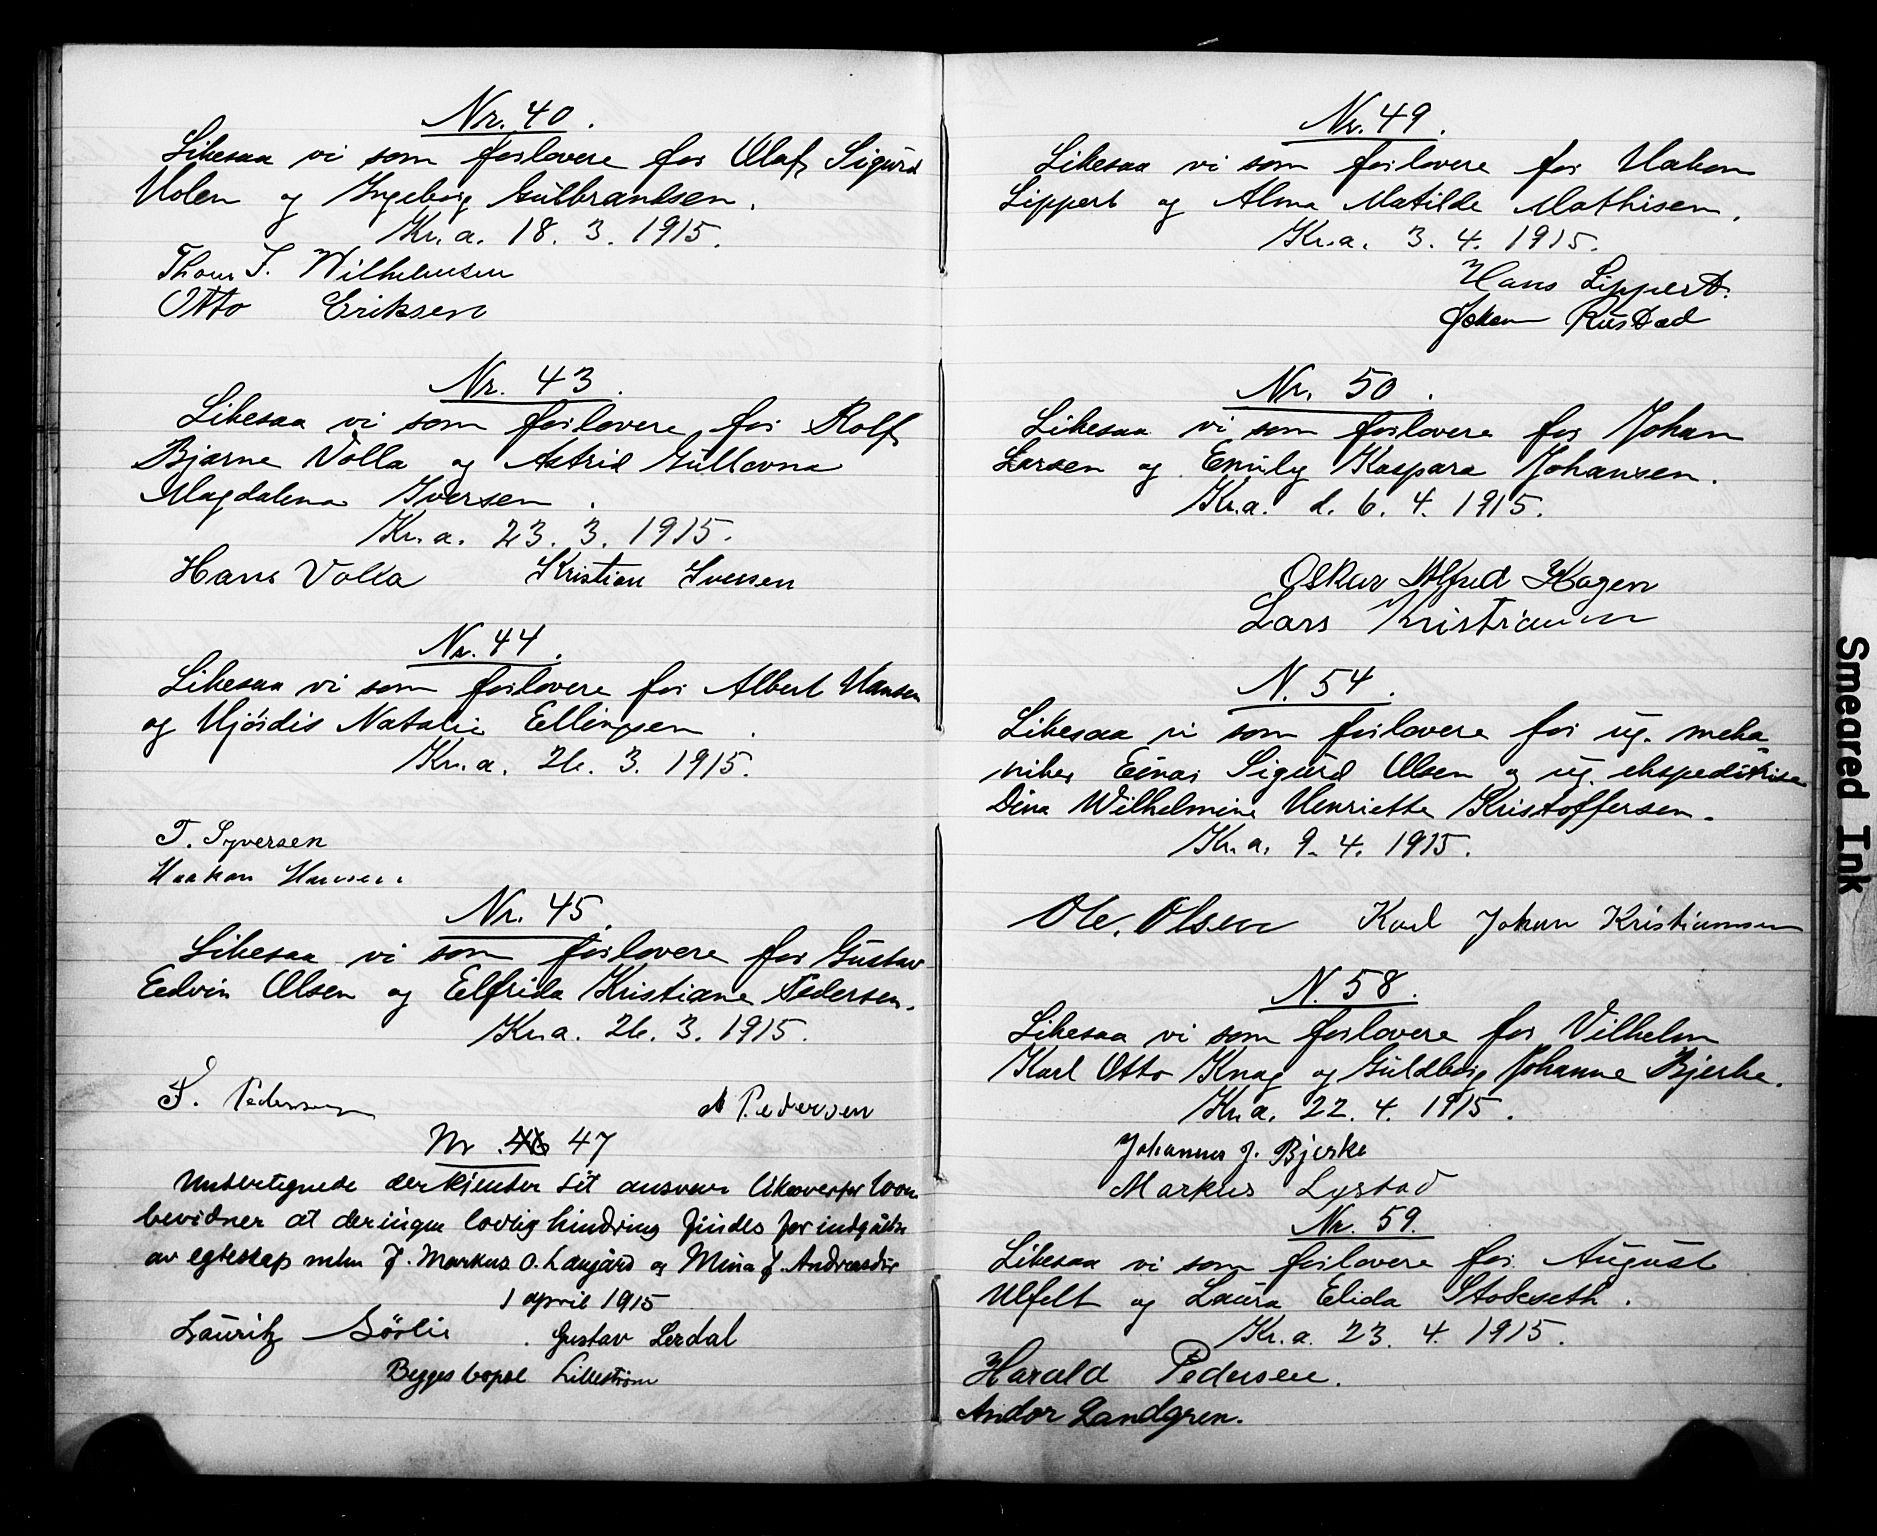 Nr. 40.
Likesaa vi som forlovere for Olaf Sigurd
Holen og Ingeborg Gulbrandsen.
Kr.a. 18. 3. 1915.
Thom T. Wilhelmsen
Otto Eriksen
Nr. 43.
Likesaa vi som forlovere for Rolf
Bjarne Volla og Astrid Gullovna
Magdalena Iversen.
Kr.a. 23. 3. 1915.
Hans Volla Kristian Iversen
Nr. 44.
Likesaa vi som forlovere for Albert Hansen
og Hjördis Natalie Ellingsen.
Kr.a. 26. 3. 1915.
T. Syversen
Haakon Hansen.
Nr. 45.
Likesaa vi som forlovere for Gustav
Edvin Olsen og Elfrida Kristiane Pedersen.
Kr.a. 26. 3. 1915.
S. Pedersen A Pedersen
Nr. 46 47
Undertegnede erkjender sit ansvar likeoverfor loven
bevidner at der ingen lovlig hindring findes for indgåelse
av egteskap mlm J. Markus O. Laugård og Mina J. Andreasdtr
1 april 1915
Lauritz Sörlie. Gustav Lerdal
Begges bopæl Lillestrøm
Nr. 49.
Likesaa vi som forlovere for Hakon
Lippert og Alma Matilde Mathisen.
Kr.a. 3. 4. 1915.
Hans Lippert.
Johan Rustad
Nr. 50.
Likesaa vi som forlovere for Johan
Larsen og Emily Kaspara Johansen.
Kr.a. d. 6. 4. 1915.
Oskar Alfred Hagen
Lars Kristiansen
N. 54.
Likesaa vi som forlovere for ug. meka-
niker Einar Sigurd Olsen og ug. ekspeditrise
Dina Wilhelmine Henriette Kristoffersen.
Kr.a. 9. 4. 1915.
Ole. Olsen Karl Johan Kristiansen
N. 58.
Likesaa vi som forlovere for Vilhelm
Karl Otto Knag og Guldborg Johanne Bjerke.
Kr.a. 22. 4. 1915.
Johannes J. Bjerke
Markus Lystad
Nr. 59.
Likesaa vi som forlovere for August
Ulfelt og Laura Elida Stokseth.
Kr.a. 23. 4. 1915.
Harald Pedersen.
Andor Landgren.
Smeared Ink